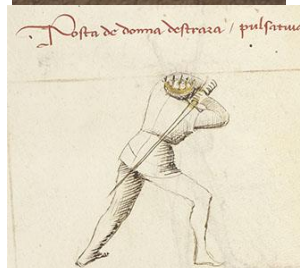 Posta de donna destrara / pulsativa